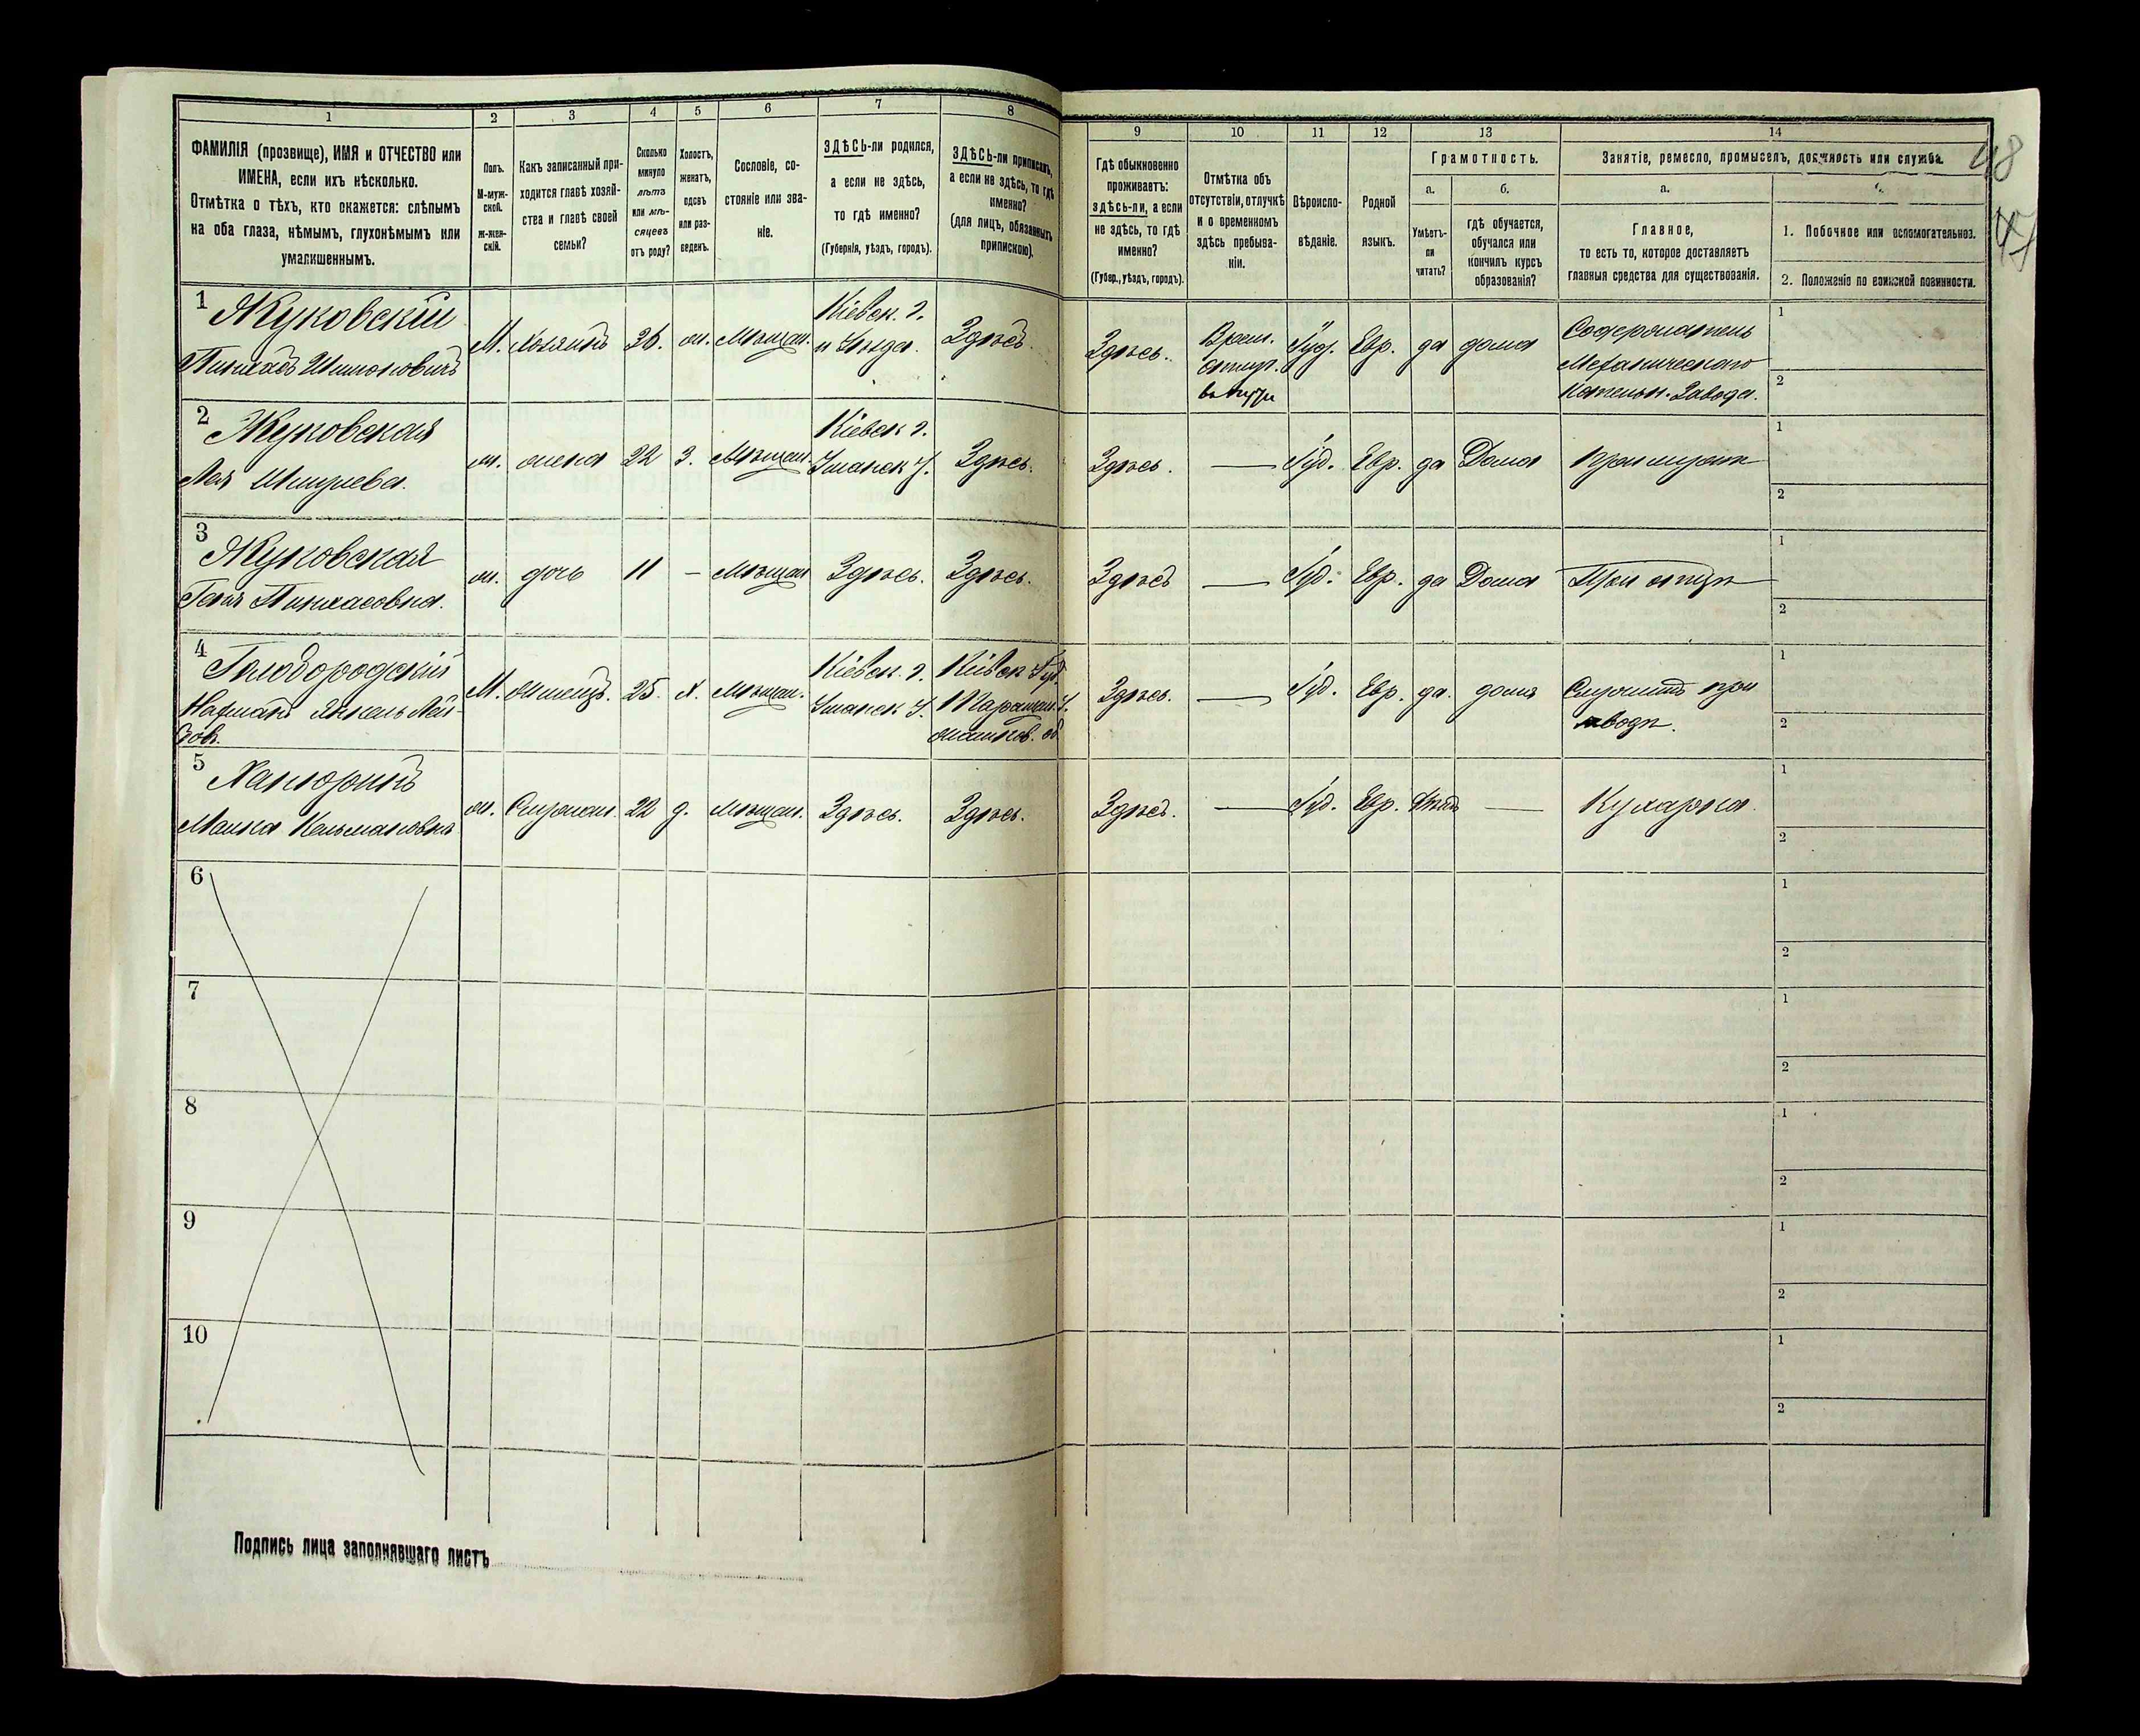 1 2 3 4 5 6 7 8 9 10 11 12 13 14
ФАМИЛІЯ (прозвище), ИМЯ и ОТЧЕСТВО или
ИМЕНА, если ихъ нѣсколько.
Отмѣтка о тѣхъ, кто окажется: слѣпымъ
на оба глаза, нѣмымъ, глухонѣмымъ или
умалишеннымъ.
Полъ.
М-муж-
ской.
ж-жен-
скій.
Какъ записанный при-
ходится главѣ хозяй-
ства и главѣ своей
семьи?
Сколько
минуло
лѣтъ
или мѣ-
сяцевъ
отъ роду?
Холостъ,
женатъ,
вдовъ
или раз-
веденъ.
Сословіе, со-
стояніе или зва-
ніе.
ЗДѢСЬ-ли родился,
а если не здѣсь,
то гдѣ именно?
(Губернія, уѣздъ, городъ).
ЗДѢСЬ-ли приписанъ,
а если не здѣсь, то гдѣ
именно?
(для лицъ, обязанныхъ
припискою).
Гдѣ обыкновенно
проживаетъ:
здѣсь-ли, а если
не здѣсь, то гдѣ
именно?
(Губер., уѣздъ, городъ).
Отмѣтка объ
отсутствіи, отлучкѣ
и о временномъ
здѣсь пребыва-
ніи.
Вѣроиспо-
вѣданіе.
Родной
языкъ.
Грамотность.
а.
Умѣетъ-
ли
читать?
б.
гдѣ обучается,
обучался или
кончилъ курсъ
образованія?
Занятіе, ремесло, промыселъ, должность или служба.
а.
Главное,
то есть то, которое доставляетъ
главныя средства для существованія.
1. Побочное или вспомогательное.
2. Положеніе по воинской повинности.
48
47
1 Жуковскій
Пинхасъ Шимоновичъ
М. хозяинъ 36. ж. Мѣщан.
Кіевск. г.
и Уѣзда.
Здѣсь.
Здѣсь.
Врем.
Іуд. Евр. да дома
Содержатель
Механическаго
Котельн. Завода.
1
2
2 Жуковская
Лея
ж. жена 22 З. Мѣщан.
Кіевск г.
Уманск У.
Здѣсь.
Здѣсь. — Іуд. Евр. да Дома При мужѣ
1
2
3 Жуковская
Пинхасовна.
ж. дочь 11 – Мѣщан Здѣсь. Здѣсь.
Здѣсь — Іуд. Евр. да Дома При отцѣ
1
2
4
Янкель
М. 25. х. Мѣщан.
Кіевск. г.
Уманск У.
Кіевск Губ.
Таращан. У.
Здѣсь. — Іуд. Евр. да. дома
Служитъ при
заводѣ.
1
2
5
Кельмановна
ж. 22 д. Мѣщан. Здѣсь. Здѣсь.
Здѣсь. — Іуд. Евр. — Кухарка.
1
2
6
1
2
7
1
2
8
1
2
9
1
2
10
1
2
Подпись лица заполнявшаго листъ